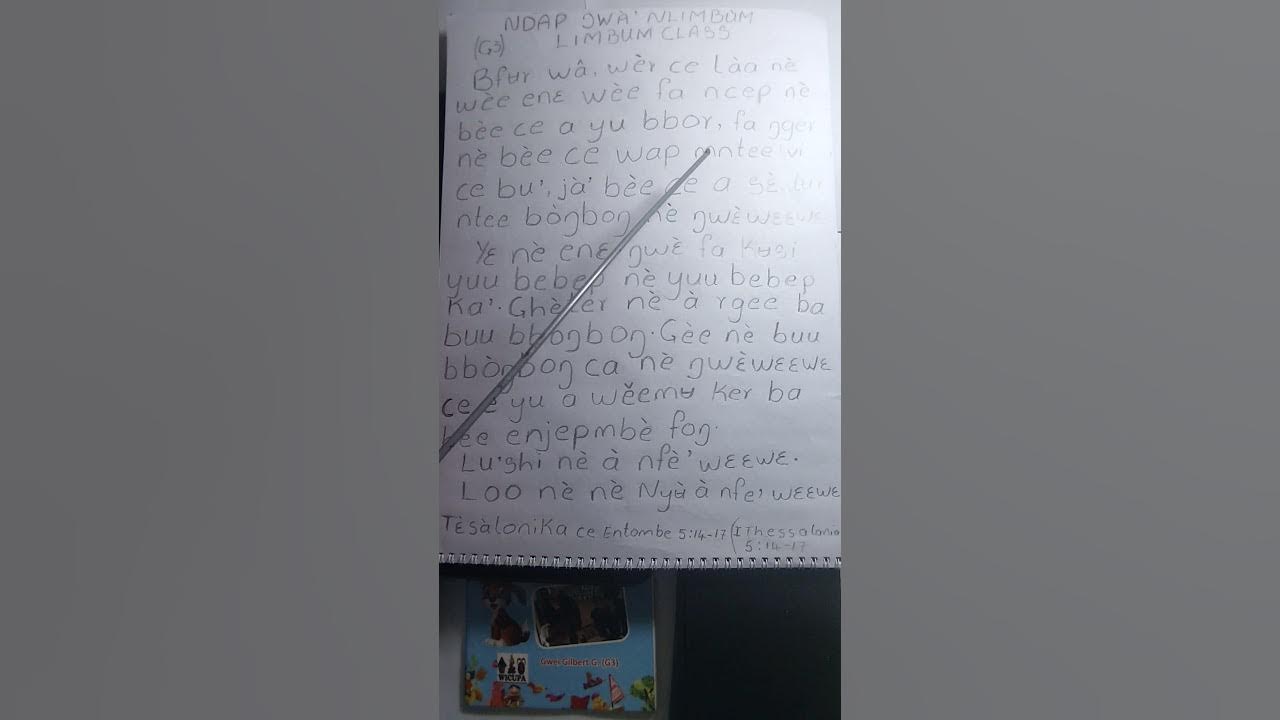 NDAP ŊWÀ' NLIMBUM
(G3) LIMBUM CLASS
Bfʉr wâ, wèr ce làa nè
wèe enɛ wèe fa ncep nè
bèe ce a yu bbor, fa ŋger
nè bèe ce wap mntee vi
ce bu', jà' bèe ce a sè
ntee bòŋboŋ nè ŋwèwɛɛwɛ
Yɛ nè enɛ ŋwè fa kʉsi
yuu bebep nè yuu bebep
ka'. Ghèter nè à rgee ba
buu bbòŋboŋ. Gèe nè buu
bbòŋboŋ ca nè ŋwèwɛɛwɛ
ce e yu a wěemʉ ker ba
bee enjepmbè foŋ.
Lu'shi nè à nfè'wɛɛwɛ.
Loo nè nè Nyʉ̀ à nfe'wɛɛwɛ
Tèsàlonika ce Entombe 5:14-17 (I Thessalonia
5:14-17
Gwei Gilbert G. (G3)
WICUPA